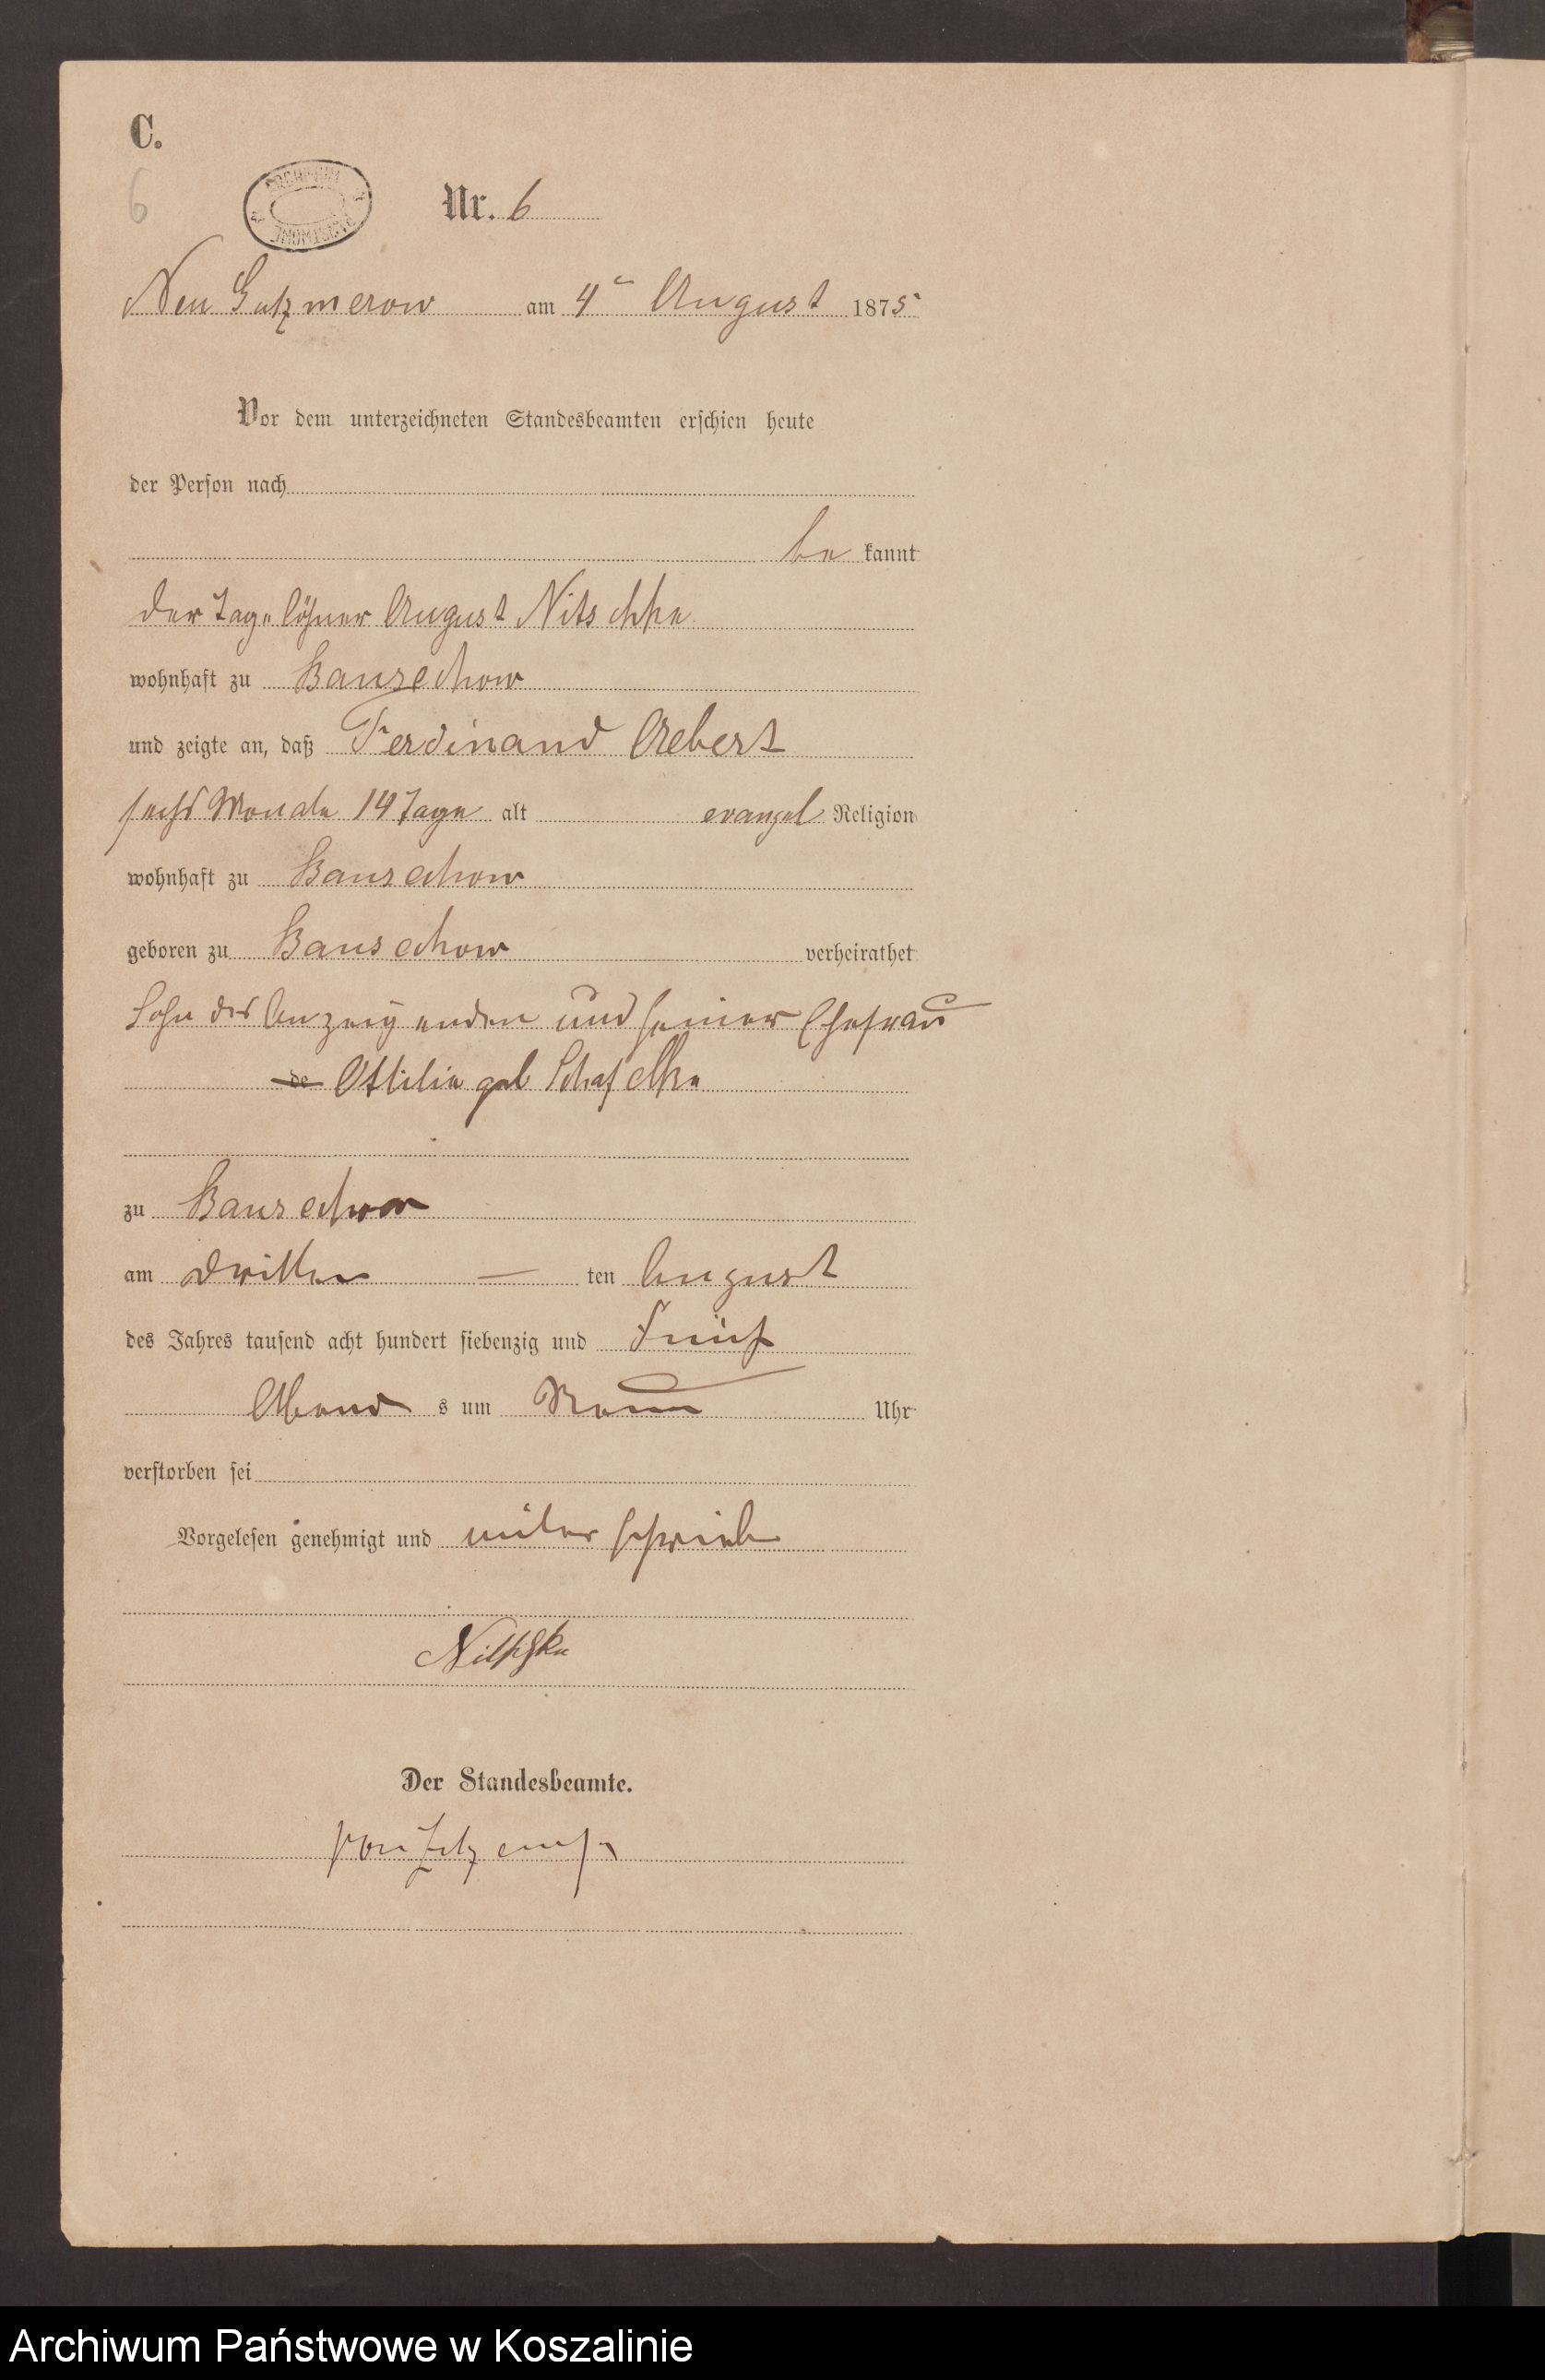 C.
6
Nr. 6
Neu Gutzmerow am 4ⁿ August 1875
Vor dem unterzeichneten Standesbeamten erschien heute
der Person nach
be kannt
der Tagelöhner August Nitschke
wohnhaft zu Banschow
und zeigte an, daß Ferdinand Albert
sechs Monate 14 Tage alt evangel Religion
wohnhaft zu Banschow
geboren zu Banschow verheirathet
Sohn des Anzeigenden und seiner Ehefrau
de Ottilie geb
zu Banschow
am dritten — ten August
des Jahres tausend acht hundert siebenzig und Fünf
Abend s um Neun Uhr
verstorben sei
Vorgelesen genehmigt und unterschrieben
Nitschke
Der Standesbeamte.
von
Archiwum Państwowe w Koszalinie